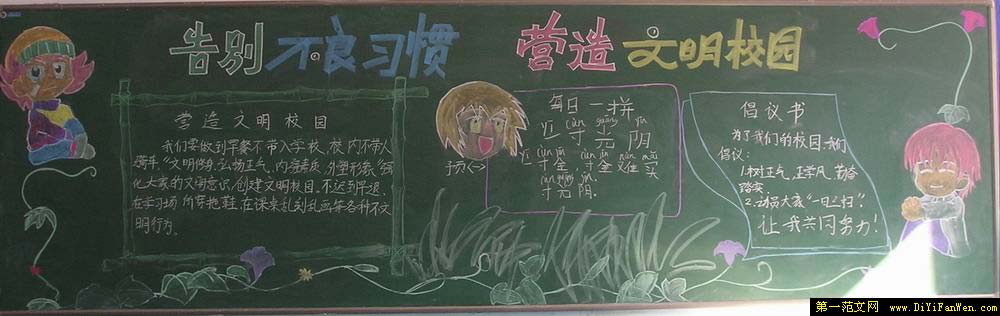 告别不良习惯 营造文明校园
营造文明校园
我们要做到早餐不带入学校,校内不带人
骑车“文明修身,弘扬正气,内强素质,外塑形象”,强
化大家的文明意识,创建文明校园,不迟到早退,
在学习场所穿拖鞋,在课桌乱刻乱画等各种不文
明行为。
每日一拼
yí cùn guāng yīn
一寸光阴
yí cùn jīn cùn jīn nán mǎi
一寸金 寸金难买
cùn guāng yīn
寸光阴.
倡议书
为了我们的校园,我们
倡议:
1.树正气,正学风,勤奋
踏实.
2.动员大家“一日三扫”.
让我共同努力!
第一范文网 www.DiYiFanWen.com